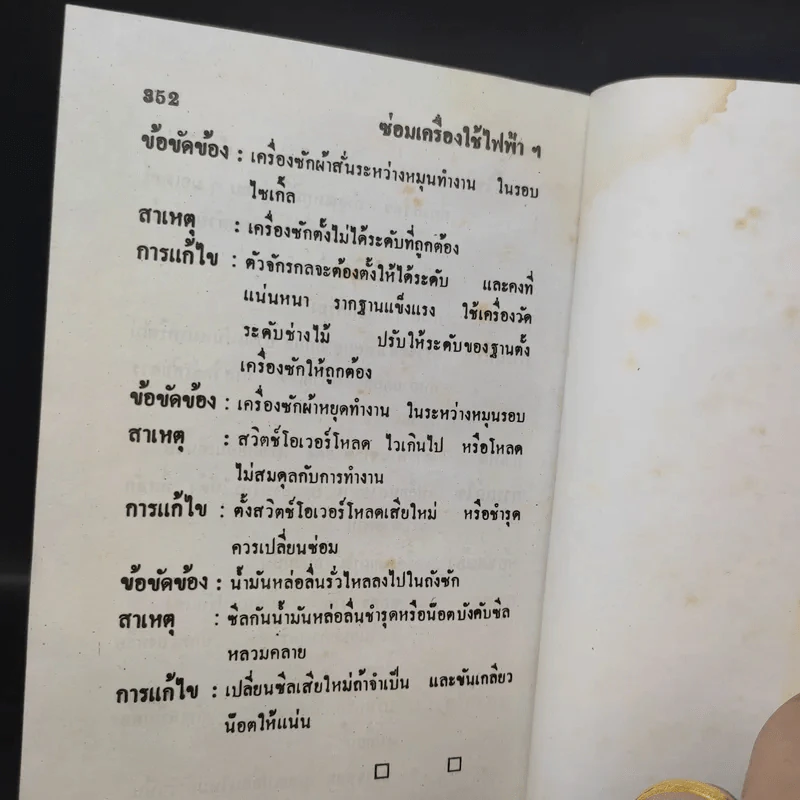 352
ซ่อมเครื่องใช้ไฟฟ้า ฯ
ข้อขัดข้อง : เครื่องซักผ้าสั่นระหว่างหมุนทำงาน ในรอบ
ไซเกิ้ล
สาเหตุ : เครื่องซักตั้งไม่ได้ระดับที่ถูกต้อง
การแก้ไข : ตัวจักรกลจะต้องตั้งให้ได้ระดับ และคงที่
แน่นหนา รากฐานแข็งแรง ใช้เครื่องวัด
ระดับช่างไม้ ปรับให้ระดับของฐานตั้ง
เครื่องซักให้ถูกต้อง
ข้อขัดข้อง : เครื่องซักผ้าหยุดทำงาน ในระหว่างหมุนรอบ
สาเหตุ : สวิตช์โอเวอร์โหลด ไวเกินไป หรือโหลด
ไม่สมดุลกับการทำงาน
การแก้ไข : ตั้งสวิตช์โอเวอร์โหลดเสียใหม่ หรือชำรุด
ควรเปลี่ยนซ่อม
ข้อขัดข้อง : น้ำมันหล่อลื่นรั่วไหลลงไปในถังซัก
สาเหตุ : ซิลกันน้ำมันหล่อลื่นชำรุดหรือน๊อตบังคับซิล
หลวมคลาย
การแก้ไข : เปลี่ยนซิลเสียใหม่ถ้าจำเป็น และขันเกลียว
น๊อตให้แน่น